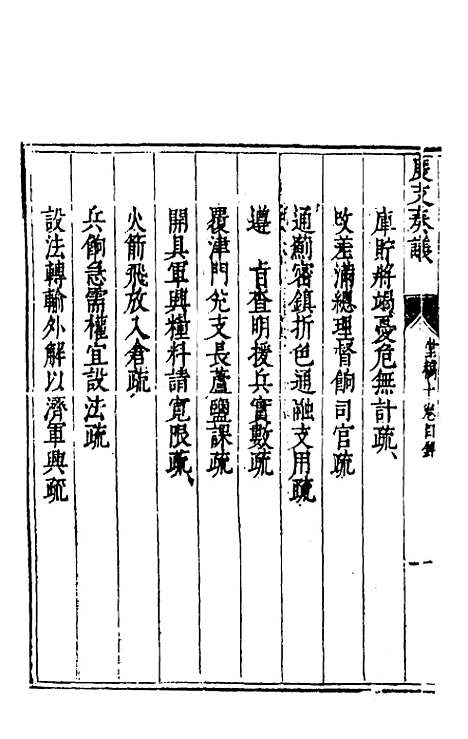 度支奏議
堂稿十卷目錄
一
庫貯將竭憂危無計疏
改差滿總理督餉司官疏
通薊密鎮折色通融支用疏
遵　旨查明援兵實數疏
覆津門兌支長蘆鹽課疏
開具軍興糧料請寬限疏
火箭飛放入倉疏
兵餉急需權宜設法疏
設法轉輸外解以濟軍興疏